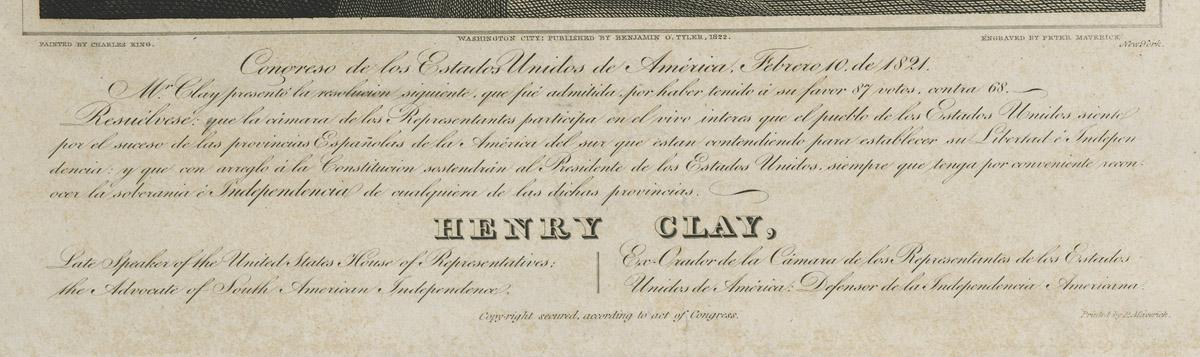 PAINTED BY CHARLES KING.
WASHINGTON CITY: PUBLISHED BY BENJAMIN O. TYLER, 1822.
ENGRAVED BY PETER MAVERICK
New York.
Congreso de los Estados Unidos de América, Febrero 10, de 1821.
Mr. Clay presentó la resolucion siguiente, que fué admitida, por haber tenido á su favor 87 votos, contra 68.
Resuélvese: que la cámara de los Representantes participa en el vivo interes que el pueblo de los Estados Unidos siente
por el suceso de las provincias Españolas de la América del sur que estan contendiendo para establecer su Libertad é Indepen
dencia: y que con arreglo á la Constitucion sostendrán al Presidente de los Estados Unidos, siempre que tenga por conveniente recon-
ocer la soberania é Independencia de cualquiera de las dichas provincias.
HENRY CLAY,
Late Speaker of the United States House of Representatives:
the Advocate of South American Independence.
Ex-Orador de la Cámara de los Representantes de los Estados
Unidos de América: Defensor de la Independencia Americana.
Copy-right secured, according to act of Congress.
Printed by P. Maverick.